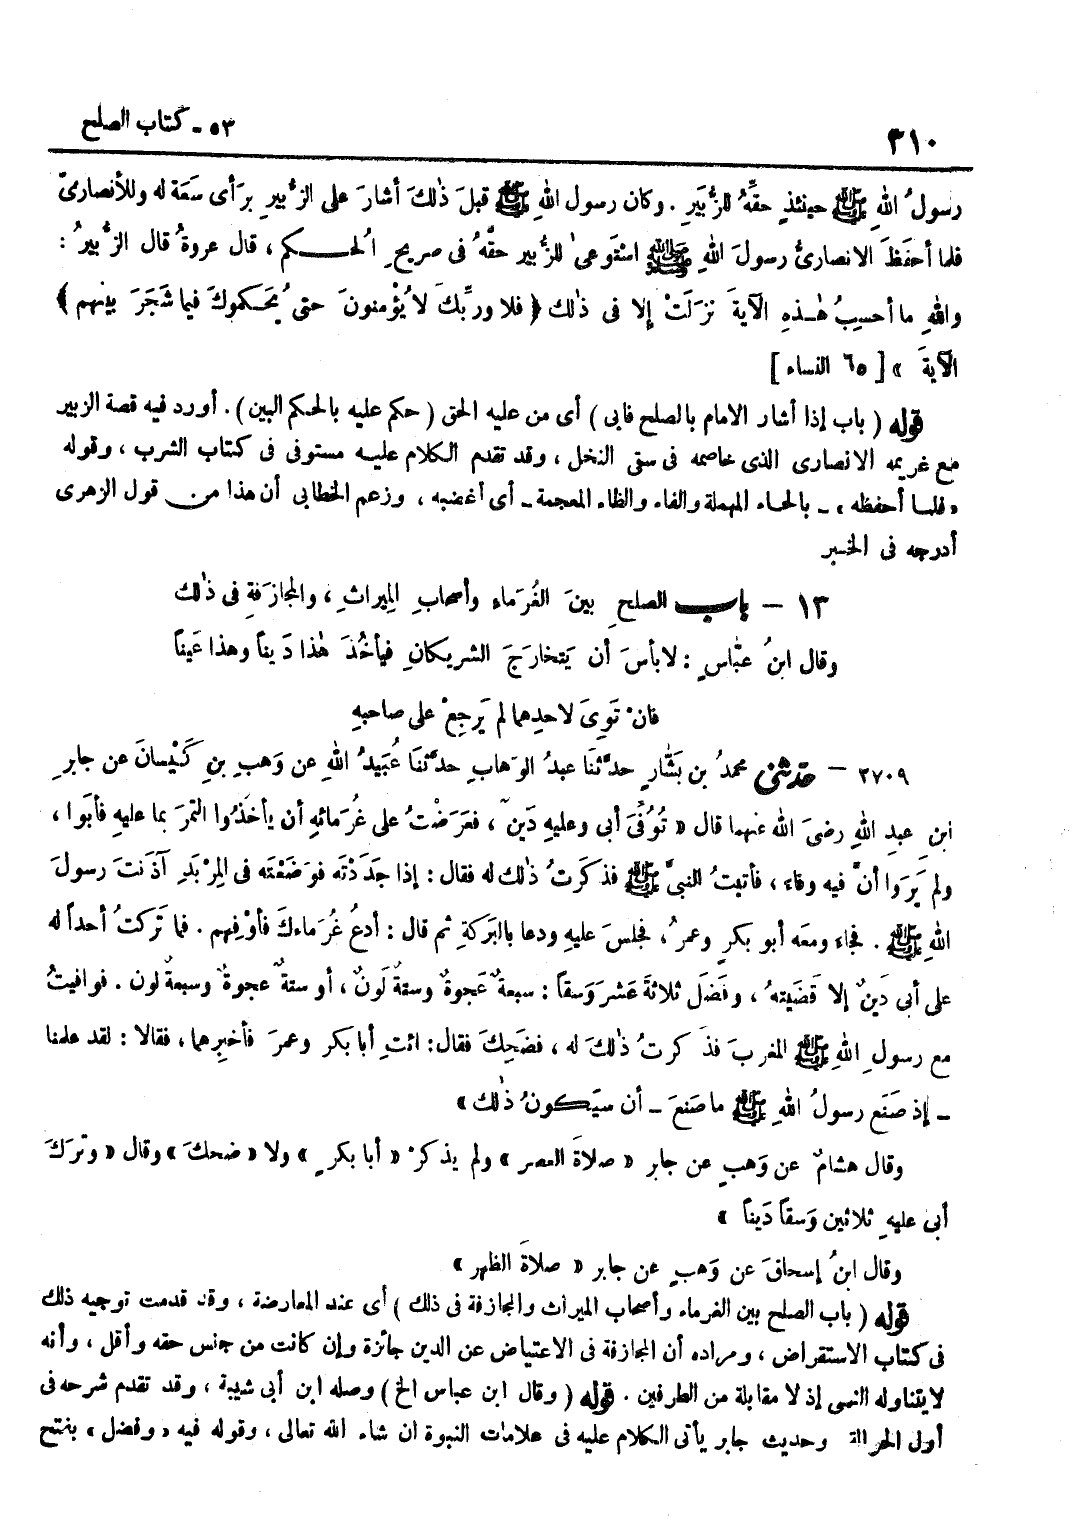 ٣١٠
٥٣ - كتاب الصلح
رسولُ اللهِ ﷺ حينئذٍ حقَّهُ للزُّبَيرِ . وكان رسول اللهِ ﷺ قبلَ ذٰلكَ أشارَ على الزُّبيرِ برَأى سَعَة له وللأنصارىّ
فلما أحفَظَ الانصارىُّ رسولَ اللهِ ﷺ استَوعىٰ للزُّبير حقَّهُ فى صريحِ الحـكم ، قال عروةُ قال الزُّبيرُ :
واللهِ ما أحسِبُ هٰـذهِ الآيةَ نزَلَتْ إلا فى ذٰلك ﴿ فلا وربِّكَ لا يُؤْمنونَ حتىٰ يُحَكموكَ فيما شَجَرَ بينهم ﴾
الآيةَ » [ ٦٥ النساء ]
قوله ( باب إذا أشار الامام بالصلح فابى ) أى من عليه الحق ( حكم عليه بالحكم البين ) . أورد فيه قصة الزبير
مع غريمه الانصارى الذى خاصمه فى سقى النخل ، وقد تقدم الكلام عليـه مستوفى فى كتاب الشرب ، وقوله
« فلمـا أحفظه » - بالحـاء المهملة والفاء والظاء المعجمة - أى أغضبه ، وزعم الخطابى أن هذا من قول الزهرى
أدرجه فى الخبر
١٣ - باب الصلحِ بينَ الغُرَماءِ وأصحابِ المِيراثِ ، والمجازَفةِ فى ذٰلك
وقال ابنُ عبّاسٍ : لا بأسَ أن يَتخارَجَ الشريكانِ فيأخُذَ هٰذا دَيناً وهذا عَيناً
فان تَوِىَ لاحدِهما لم يَرجِعْ على صاحبهِ
٢٧٠٩ - حدثنى محمدُ بن بَشّارٍ حدَّثَنا عبدُ الوَهابِ حدَّثَنا عُبَيدُ اللهِ عن وَهبِ بنِ كَيْسانَ عن جابرِ
ابنِ عبدِ اللهِ رضىَ الله عنهما قال « تُوُفِّىَ أبى وعليهِ دَينٌ ، فعَرَضْتُ على غُرَمائهِ أن يأخُذُوا التمرَ بما عليهِ فأبَوا ،
ولم يَرَوا أنَّ فيه وفاء ، فأتيتُ النبىَّ ﷺ فذكَرتُ ذٰلك له فقال : إذا جدَدْتَه فوَضَعْتَه فى المِرْبَدِ آذَنتَ رسولَ
اللهِ ﷺ . فجاء ومعَه أبو بكرٍ وعمرُ ، فجلسَ عليهِ ودعا بالبَركةِ ثم قال : أدعُ غُرَماءكَ فأوْفِهم . فما تَركتُ أحداً له
على أبى دَينٌ إلا قَضَيتهُ ، وفَضَلَ ثلاثةَ عشَرَ وَسقاً : سبعةٌ عَجوةٌ وستةٌ لَونٌ ، أو ستةٌ عجوةٌ وسبعةٌ لون . فوافيتُ
مع رسولِ اللهِ ﷺ المغربَ فذَكرتُ ذٰلكَ له ، فضَحِكَ فقال : ائتِ أبا بكر وعمرَ فأخبِرهما ، فقالا : لقد علمنا
- إذ صنَع رسولُ اللهِ ﷺ ما صَنعَ - أن سيَكونُ ذٰلك »
وقال هشامٌ عن وَهبٍ عن جابر « صلاةَ العصرِ » ولم يذكرْ « أبا بكرٍ » ولا « ضحكَ » وقال « وتركَ
أبى عليهِ ثلاثين وَسقاً دَيناً »
وقال ابنُ إسحاقَ عن وَهبٍ عن جابر « صلاةَ الظهرِ »
قوله ( باب الصلح بين الغرماء وأصحاب الميراث والمجازفة فى ذلك ) أى عند المعارضة ، وقد قدمت توجيه ذلك
فى كتاب الاستقراض ، ومراده أن المجازفة فى الاعتياض عن الدين جائزة وإن كانت من جنس حقه وأقل ، وأنه
لا يتناوله النهى إذ لا مقابلة من الطرفين . قوله ( وقال ابن عباس الخ ) وصله ابن أبى شيبة ، وقد تقدم شرحه فى
أول الحوالة وحديث جابر يأتى الكلام عليه فى علامات النبوة ان شاء الله تعالى ، وقوله فيه « وفضل » بفتح